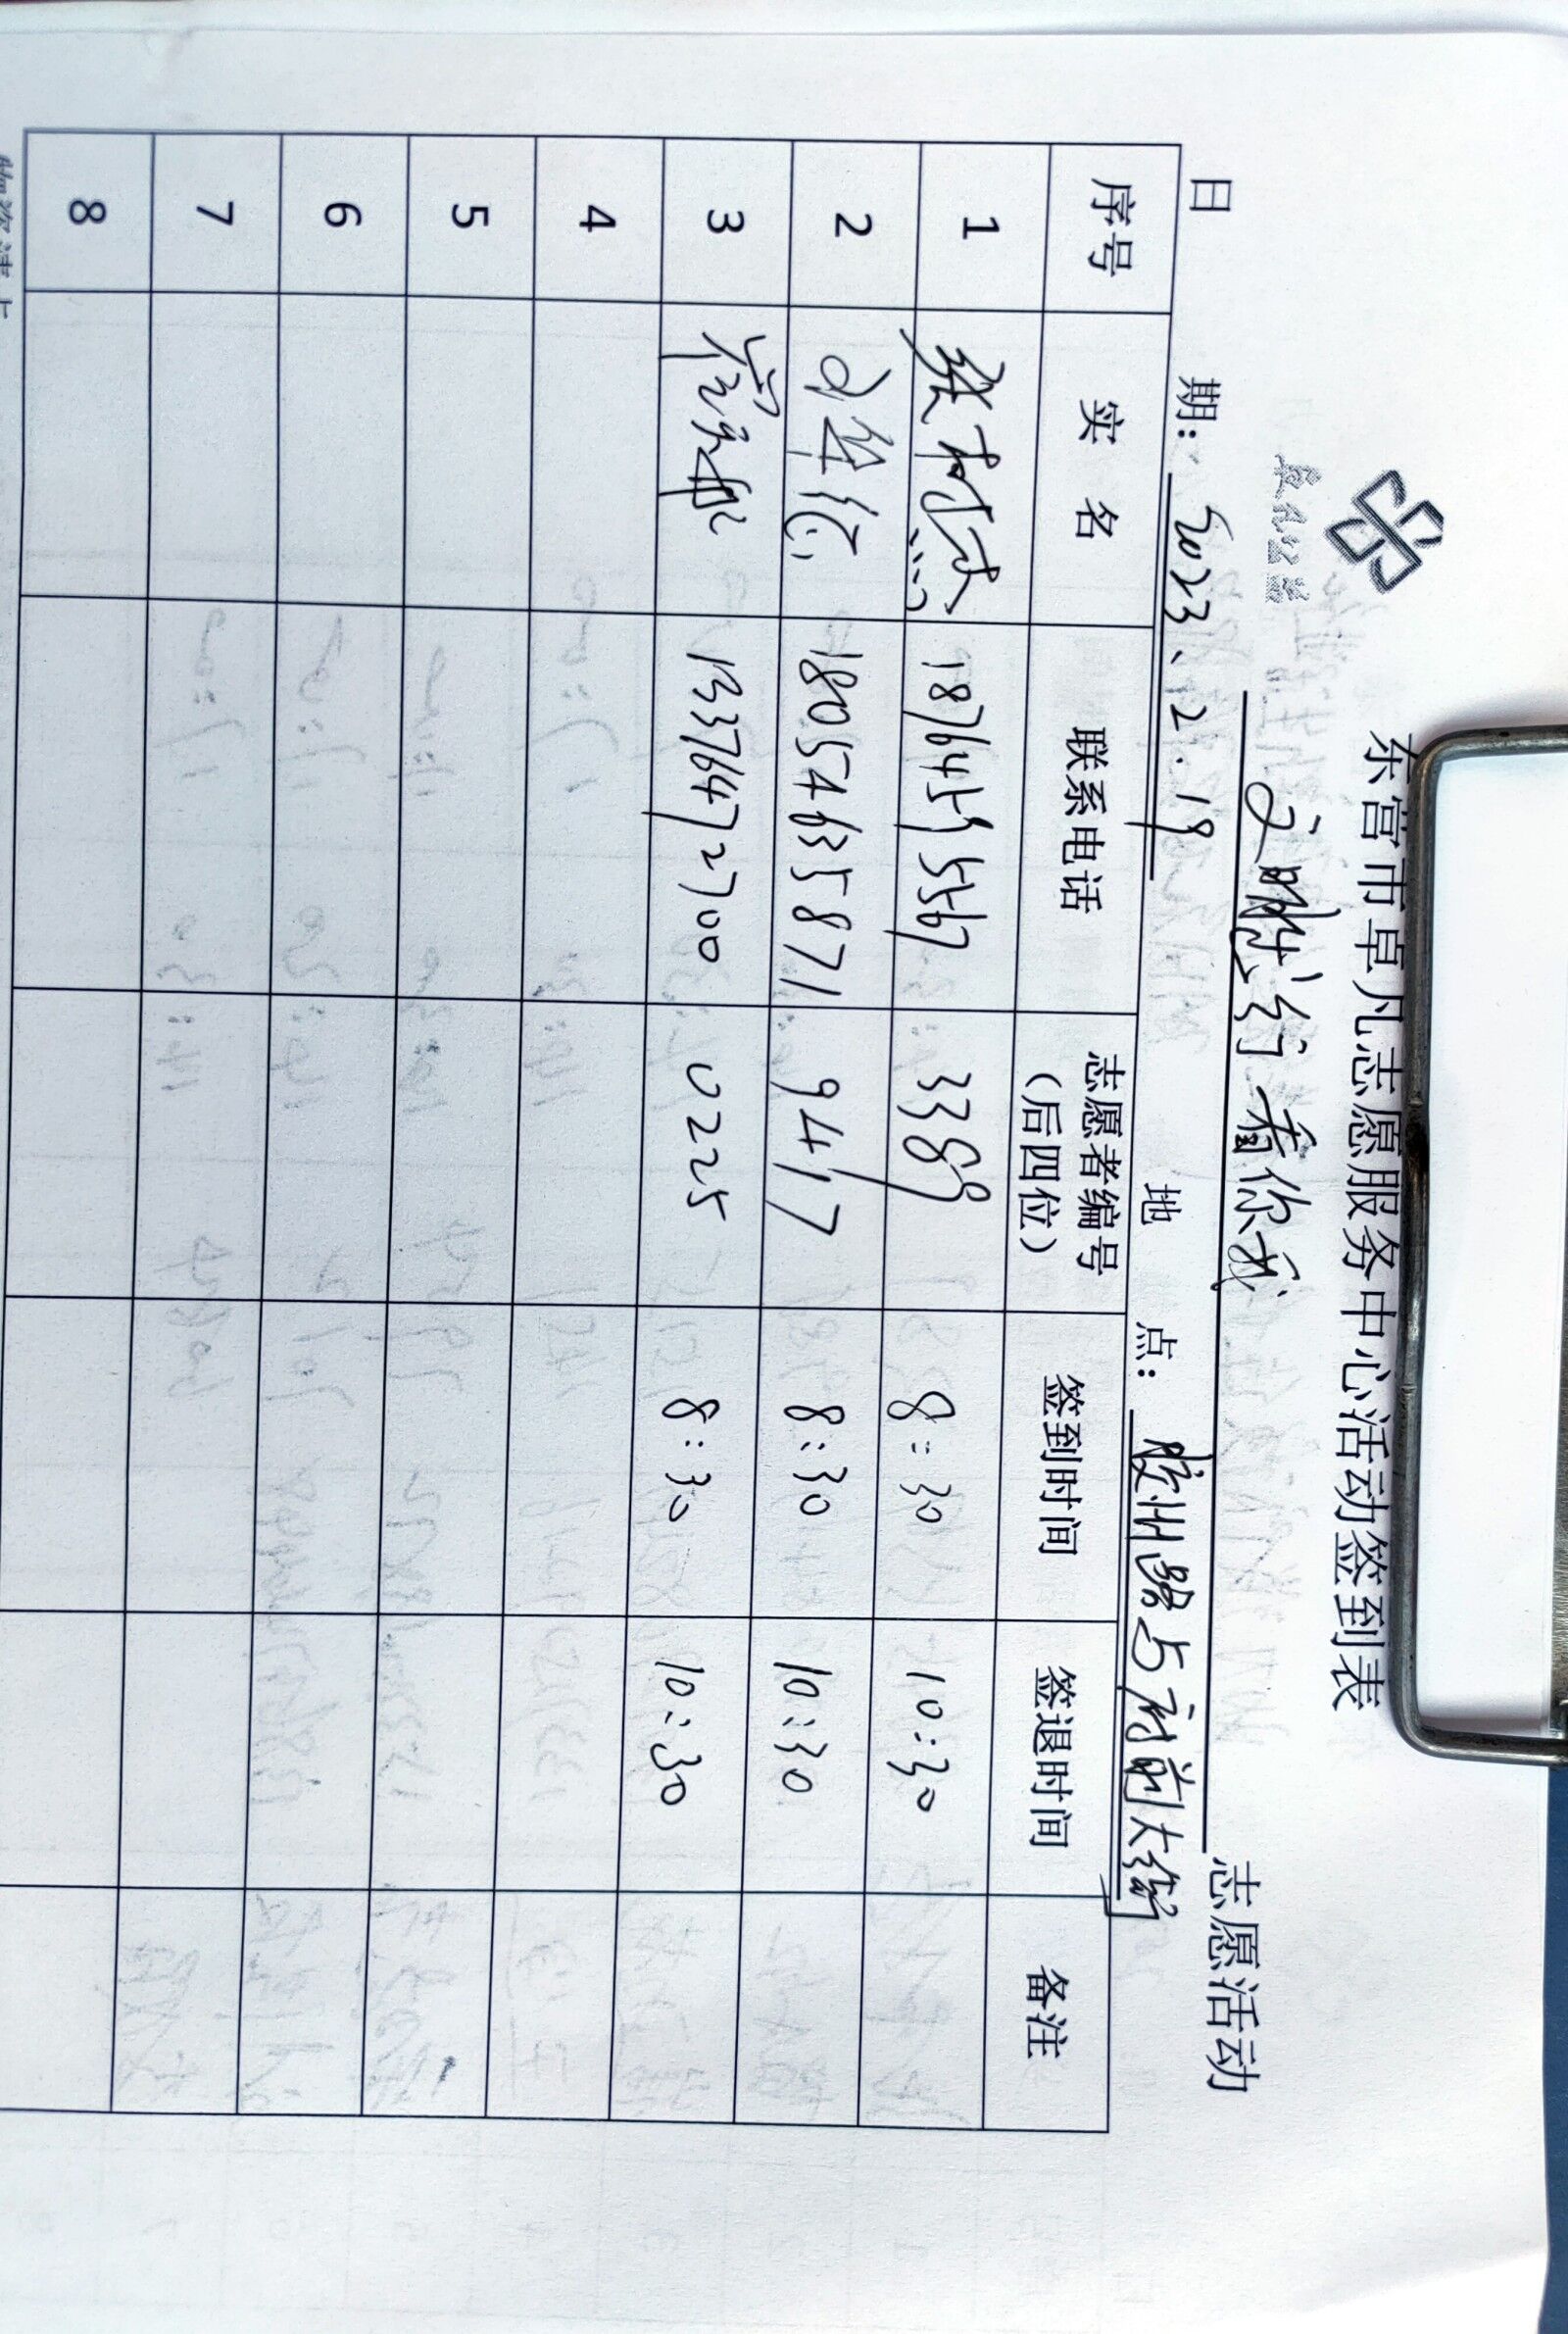 卓凡公益
东营市卓凡志愿服务中心活动签到表
文明 有你我 志愿活动
日 期: 2023、12.19 地 点: 胶州路与府前大街
序号 实 名 联系电话 志愿者编号（后四位） 签到时间 签退时间 备注
1 张树杰 18764555567 3389 8:30 10:30
2 18054635871 9417 8:30 10:30
3 13376472700 0225 8:30 10:30
4
5
6
7
8